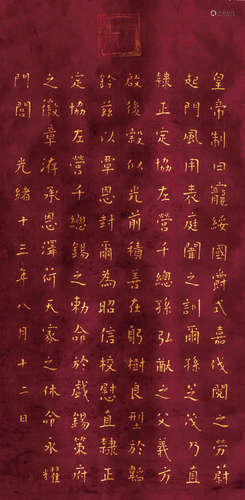 皇帝制曰寵綏國爵式嘉伐閱之勞蔚
起門風用表庭闈之訓爾孫芝茂乃直
隸正定協左營千總孫弘猷之父義方
啟後穀似光前積善在躬樹良型於韜
鈐茲以覃恩封爾為昭信校尉直隸正
定協左營千總錫之勅命於戲錫策府
之徽章洊承恩澤荷天家之休命永耀
門閭 光緒十三年八月十二日